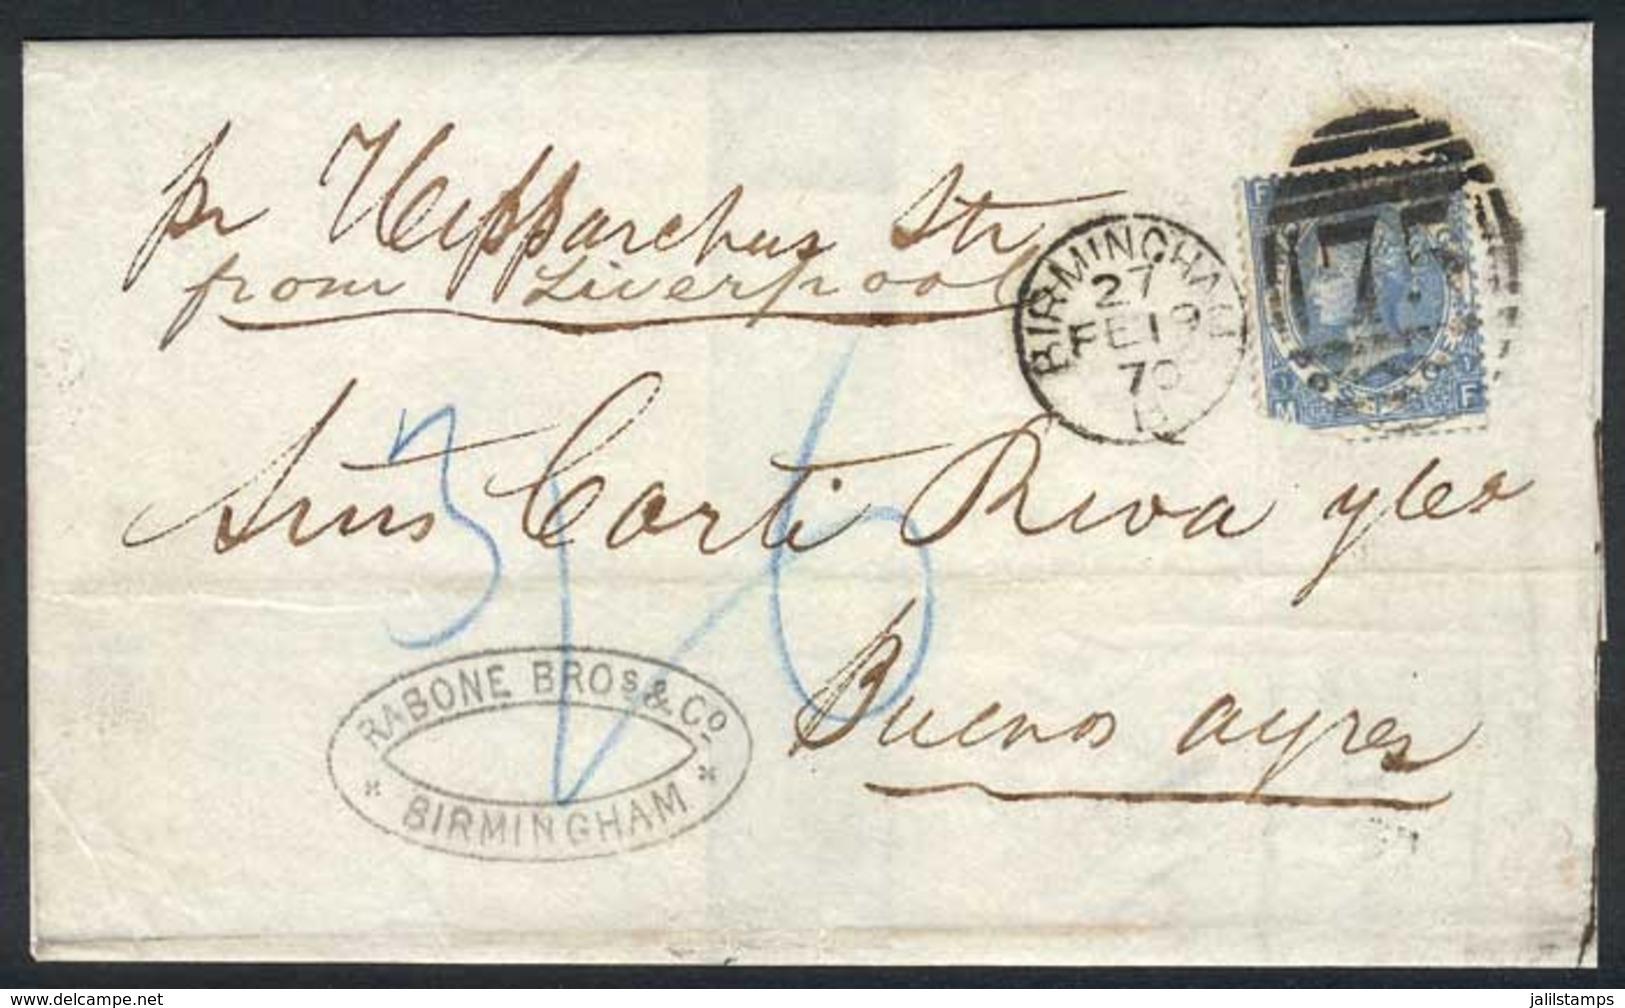 pr Hipparchus Str
from Liverpool
BIRMINGHAM
27
FE 19
70
75
F
M F
Corti Riva y Ca
Buenos ayres
RABONE BROS & CO
BIRMINGHAM
delcampe.net
jalilstamps